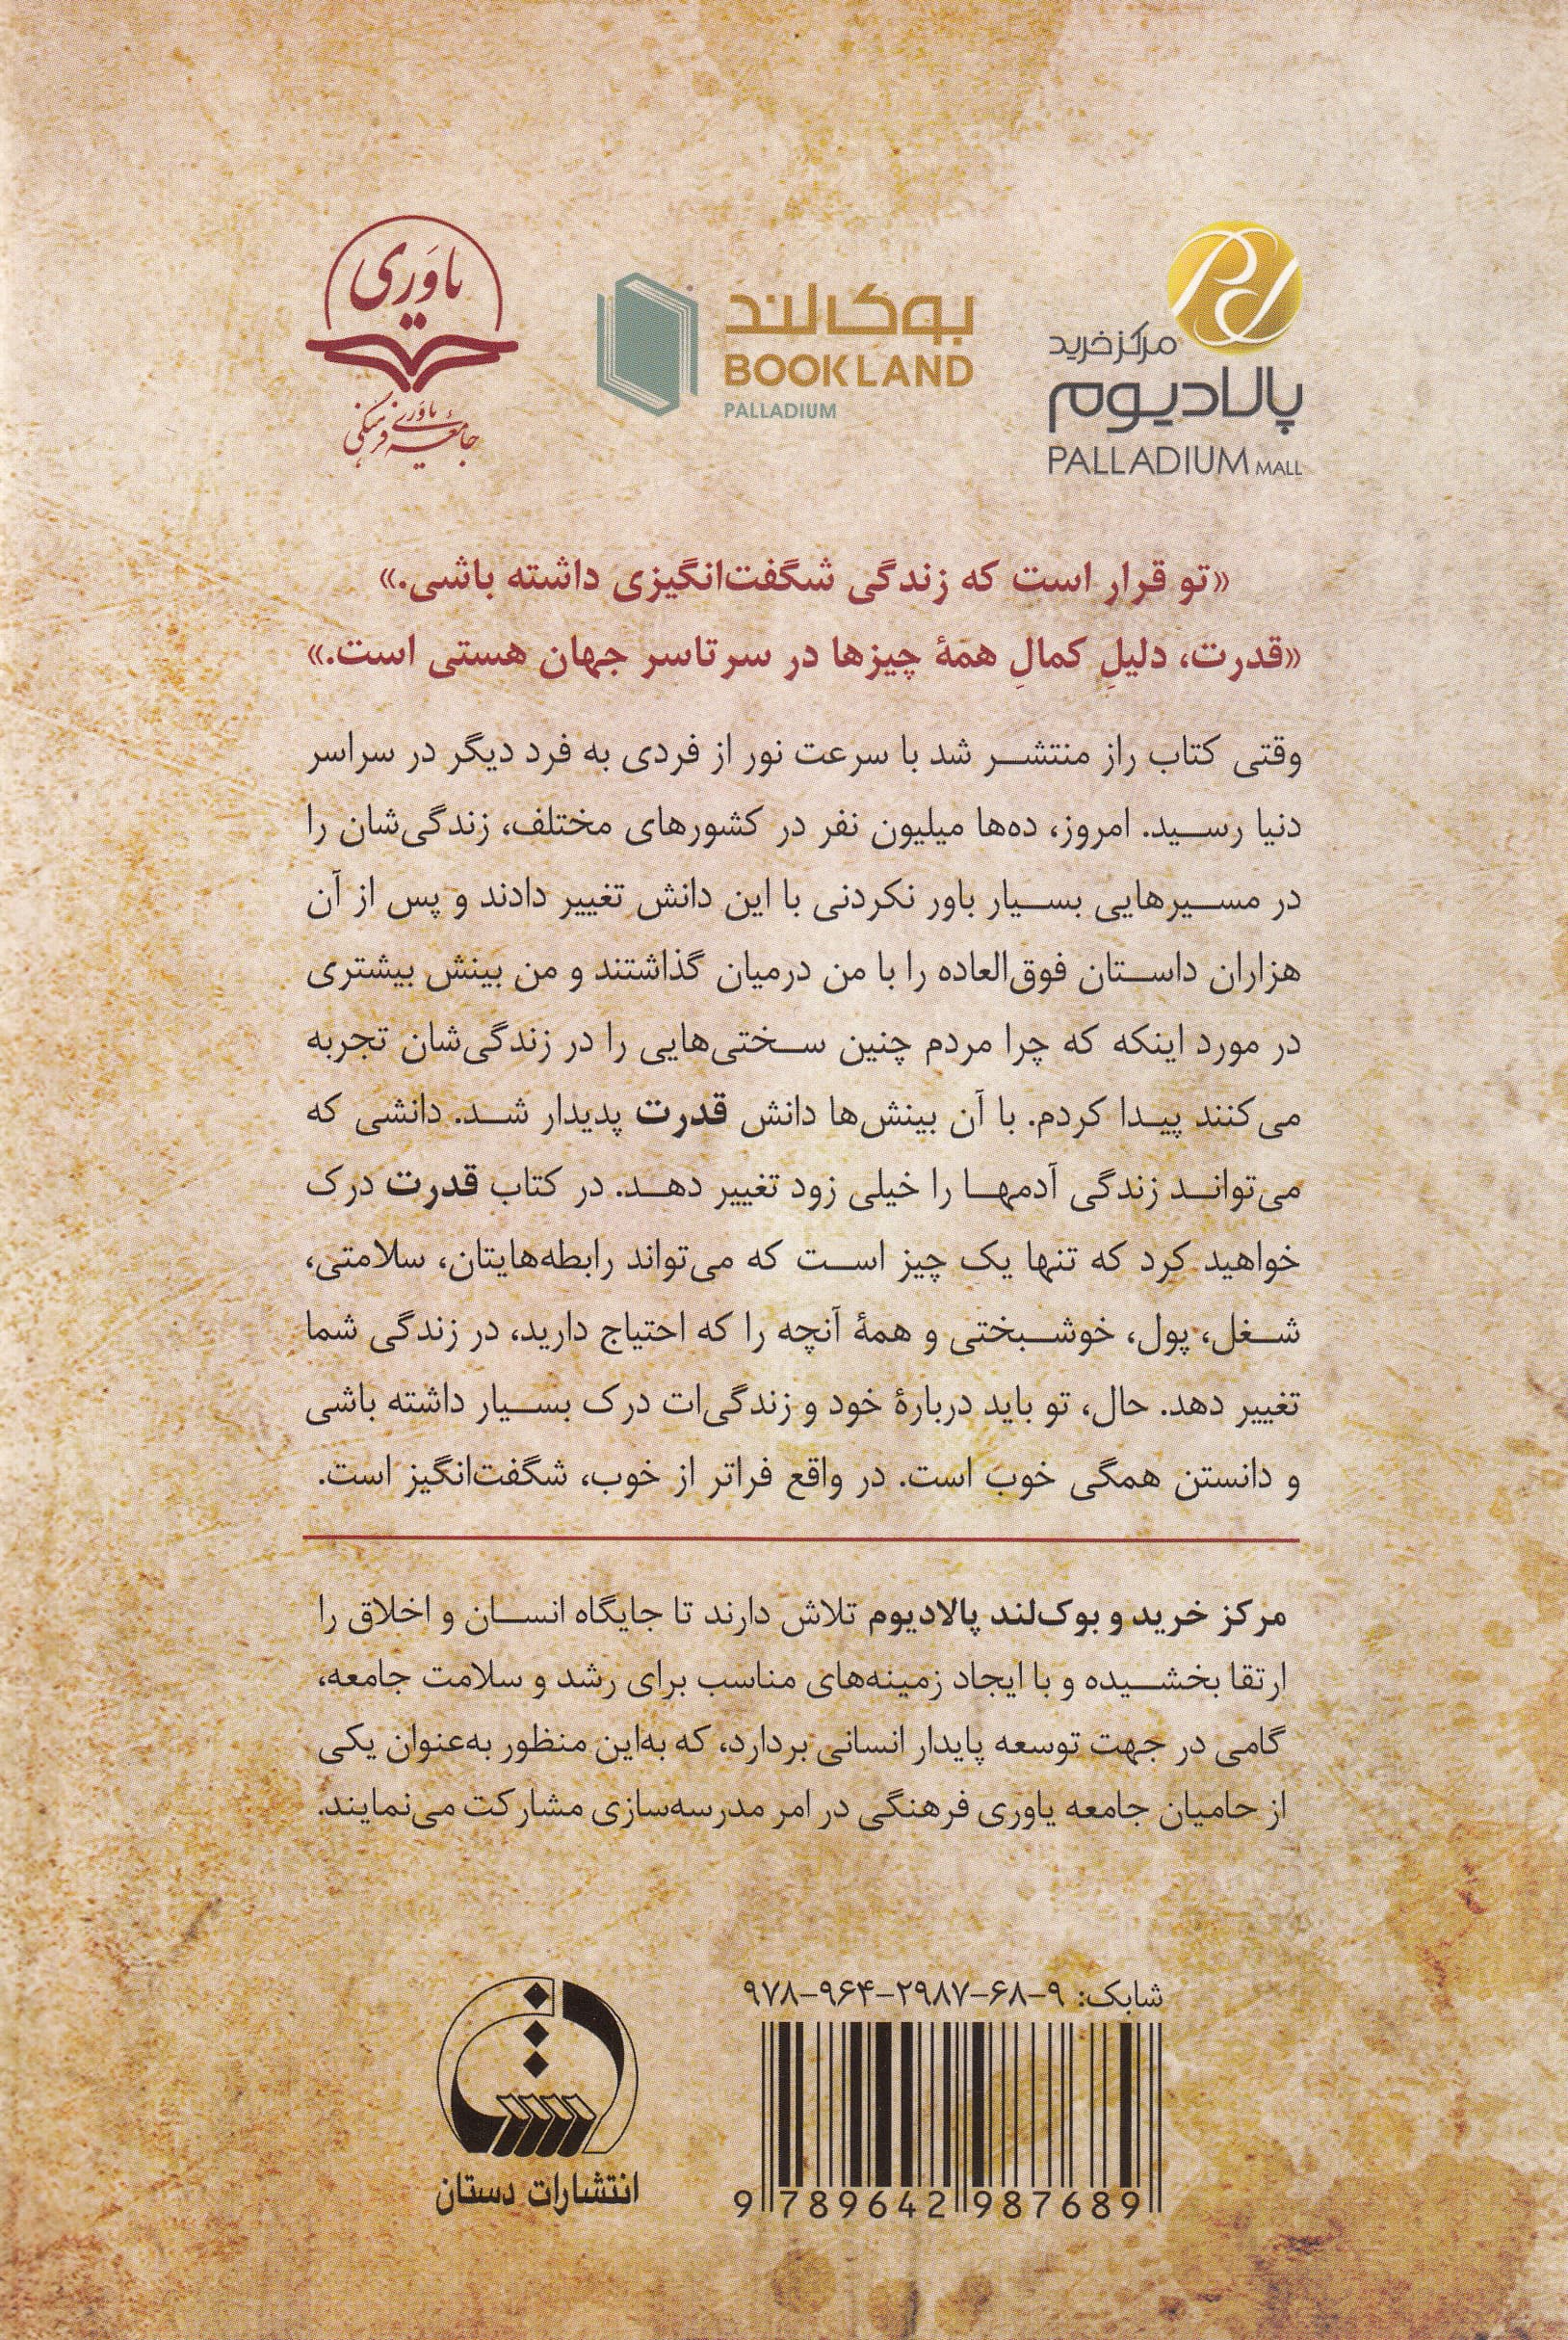 یاوری
جامعۀ یاوری فرهنگی
بوک‌لند
BOOKLAND
PALLADIUM
مرکز خرید
پالادیوم
PALLADIUM MALL
«تو قرار است که زندگی شگفت‌انگیزی داشته باشی.»
«قدرت، دلیلِ کمالِ همۀ چیزها در سرتاسر جهان هستی است.»
وقتی کتاب راز منتشر شد با سرعت نور از فردی به فرد دیگر در سراسر
دنیا رسید. امروز، ده‌ها میلیون نفر در کشورهای مختلف، زندگی‌شان را
در مسیرهایی بسیار باور نکردنی با این دانش تغییر دادند و پس از آن
هزاران داستان فوق‌العاده را با من درمیان گذاشتند و من بینش بیشتری
در مورد اینکه که چرا مردم چنین سختی‌هایی را در زندگی‌شان تجربه
می‌کنند پیدا کردم. با آن بینش‌ها دانش قدرت پدیدار شد. دانشی که
می‌تواند زندگی آدمها را خیلی زود تغییر دهد. در کتاب قدرت درک
خواهید کرد که تنها یک چیز است که می‌تواند رابطه‌هایتان، سلامتی،
شغل، پول، خوشبختی و همۀ آنچه را که احتیاج دارید، در زندگی شما
تغییر دهد. حال، تو باید دربارۀ خود و زندگی‌ات درک بسیار داشته باشی
و دانستن همگی خوب است. در واقع فراتر از خوب، شگفت‌انگیز است.
مرکز خرید و بوک‌لند پالادیوم تلاش دارند تا جایگاه انسان و اخلاق را
ارتقا بخشیده و با ایجاد زمینه‌های مناسب برای رشد و سلامت جامعه،
گامی در جهت توسعه پایدار انسانی بردارد، که به‌این منظور به‌عنوان یکی
از حامیان جامعه یاوری فرهنگی در امر مدرسه‌سازی مشارکت می‌نمایند.
شابک: ۹-۶۸-۲۹۸۷-۹۶۴-۹۷۸
9 789642 987689
انتشارات دستان